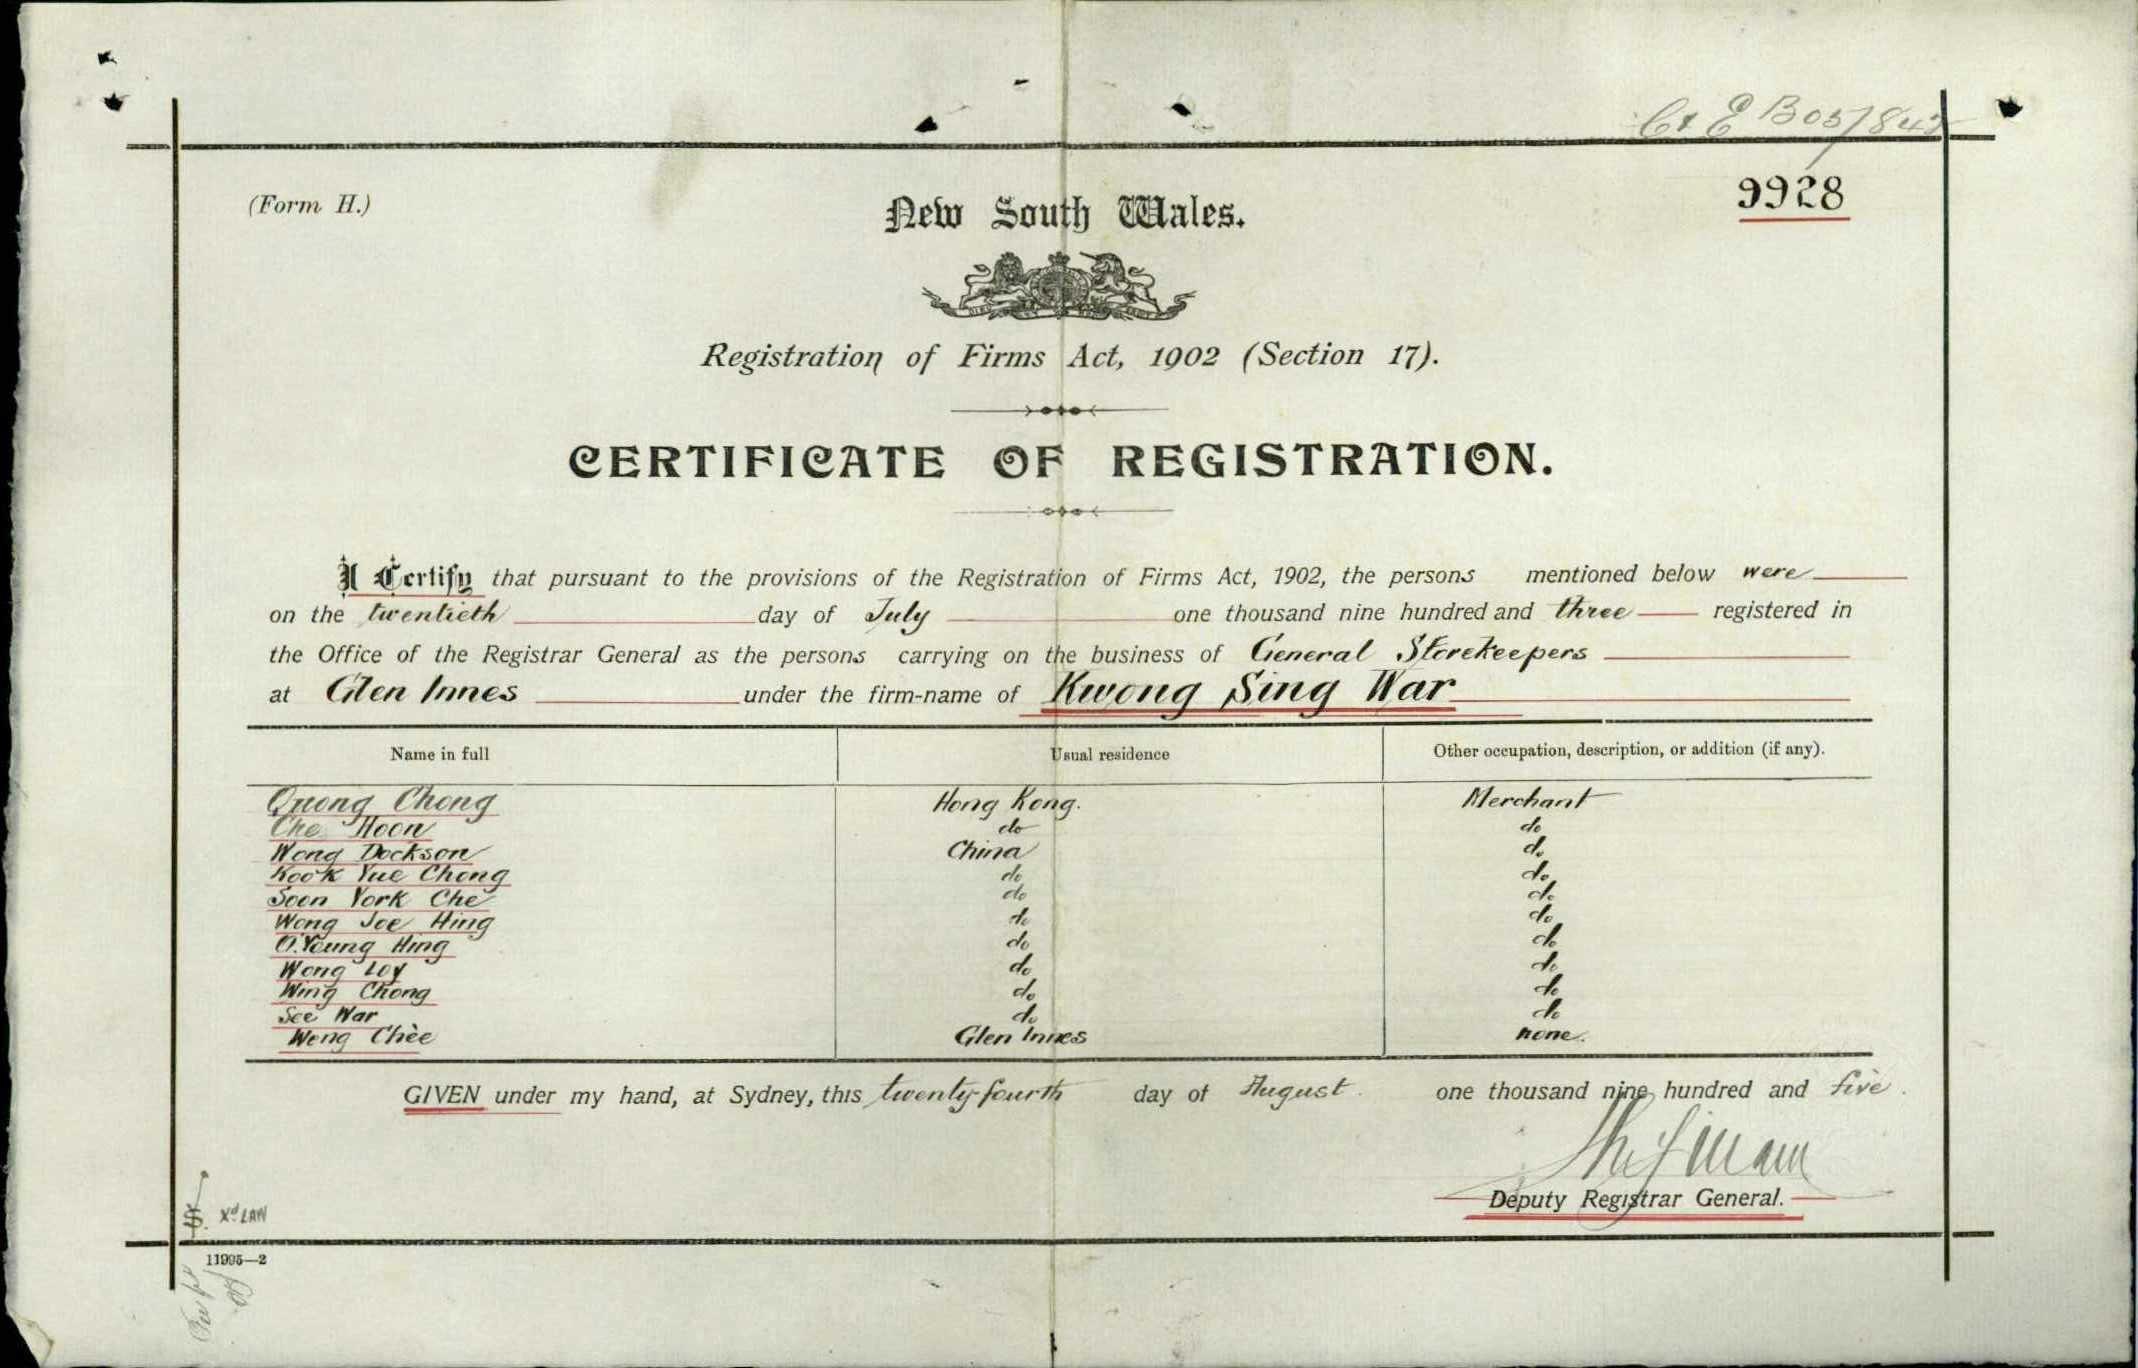 Ct E B05/842
(Form H.)
New South Wales.
9928
Registration of Firms Act, 1902 (Section 17).
CERTIFICATE OF REGISTRATION.
I Certify that pursuant to the provisions of the Registration of Firms Act, 1902, the persons mentioned below were
on the twentieth day of July one thousand nine hundred and three registered in
the Office of the Registrar General as the persons carrying on the business of General Storekeepers
at Glen Innes under the firm-name of Kwong Sing War
Name in full Usual residence Other occupation, description, or addition (if any).
Quong Chong Hong Kong. Merchant
Che Hoon do do
Wong Dockson China do
Kook Yue Chong do do
Soon York Che do do
Wong Joe Hing do do
O.Young Hing do do
Wong Loy do do
Wing Chong do do
See War do do
Wong Chee Glen Innes none.
GIVEN under my hand, at Sydney, this twenty-fourth day of August one thousand nine hundred and five.
Deputy Registrar General.
Xd LAW
11995—2